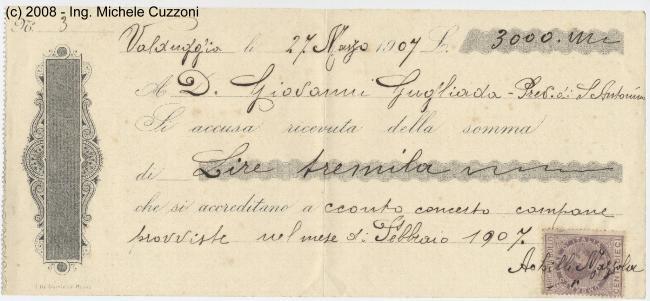 (c) 2008 - Ing. Michele Cuzzoni
N.° 3
Valduggia li 27 Marzo 1907 L. 3000.
A D. Giovanni Gugliada - Prev. di S. Antonino
Si accusa ricevuta della somma
di Lire tremila
che si accreditano a cconto concerto campane
provviste nel mese di Febbraio 1907.
Achille Mazzola